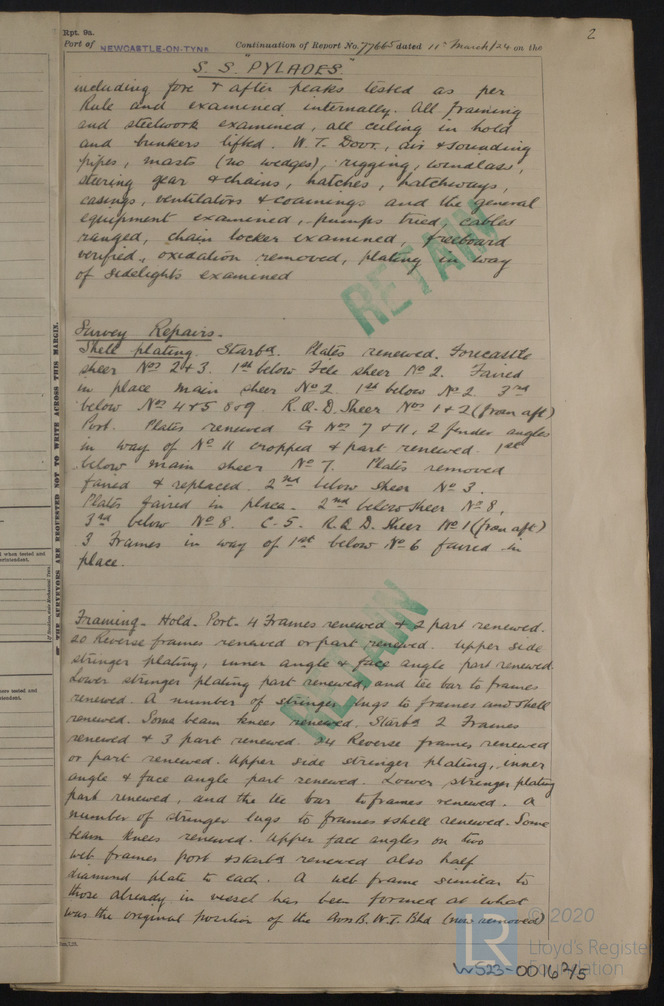 Rpt. 9a.
2
Port of NEWCASTLE-ON-TYNE Continuation of Report No. 77665 dated 11th March/24 on the
S.S. "PYLADES"
including fore & after peaks tested as per
Rule and examined internally. All framing
and steelwork examined, all ceiling in hold
and bunkers lifted. W.T. Door, air & sounding
pipes, masts (no wedges), rigging, windlass,
steering gear & chains, hatches, hatchways,
casings, ventilators & coamings and the general
equipment examined, pumps tried, cables
ranged, chain locker examined, freeboard
verified, oxidation removed, plating in way
of sidelights examined
RETAIN
Survey Repairs.
Shell plating Starbd. Plates renewed. Forecastle
sheer Nos 2 & 3. 1st below Fcle sheer No 2. Faired
in place main sheer No 2. 1st below No 2. 3rd
below Nos 4 & 5 8 & 9. R.Q.D. Sheer Nos 1 & 2 (from aft)
Port. Plates renewed G Nos 7 & 11, 2 fender angles
in way of No 11 cropped & part renewed. 1st
below main sheer No 7. Plates removed
faired & replaced. 2nd below sheer No 3.
Plates faired in place. 2nd below sheer No 8,
3rd below No 8. C-5. R.Q.D. Sheer No 1 (from aft)
3 Frames in way of 1st below No 6 faired in
place.
RETAIN
Framing - Hold - Port. 4 Frames renewed & 2 part renewed.
20 Reverse frames renewed or part renewed. Upper side
stringer plating, inner angle & face angle part renewed.
Lower stringer plating part renewed, and tee bar to frames
renewed. A number of stringer lugs to frames and shell
renewed. Some beam knees renewed. Starbd 2 Frames
renewed & 3 part renewed. 24 Reverse frames renewed
or part renewed. Upper side stringer plating, inner
angle & face angle part renewed. Lower stringer plating
part renewed, and the tee bar to frames renewed. A
number of stringer lugs to frames & shell renewed. Some
beam knees renewed. Upper face angles on two
web frames port & starbd renewed also half
diamond plate to each. A web frame similar to
those already in vessel has been formed at what
was the original position of the W.T. Bhd (now removed)
OF THE SURVEYORS ARE REQUESTED NOT TO WRITE ACROSS THIS MARGIN.
LR
© 2020
Lloyd's Register
Foundation
WS23-0016 2/5